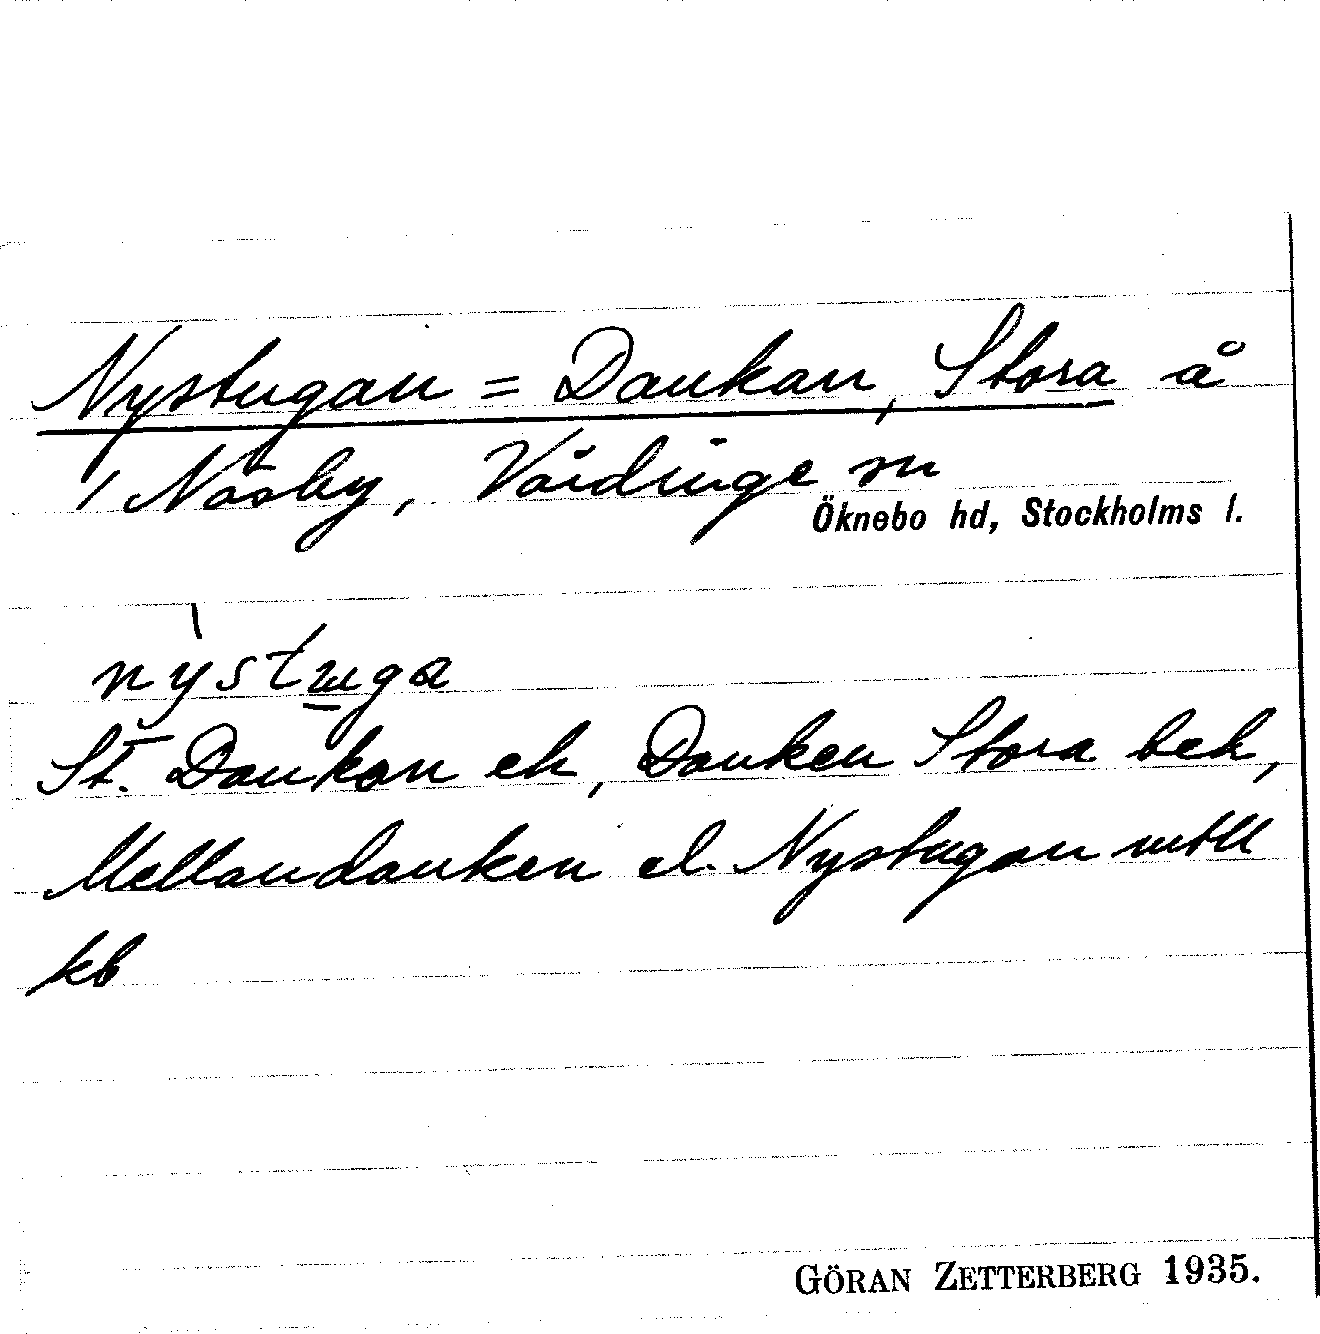 Nystugan = Dankan, Stora å
1 Näsby, Vårdinge sn
Öknebo hd, Stockholms l.
nystuga
St. Dankan ek, Danken Stora bek,
Mellandanken el. Nystugan mtll
kb
GÖRAN ZETTERBERG 1935.